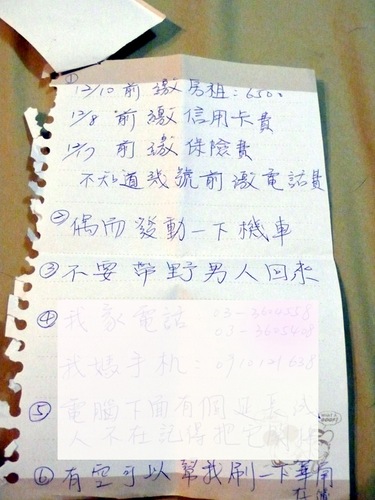 ①
12/10 前 繳 房租:6500
12/8 前 繳 信用卡費
12/7 前 繳 保險費
不知道幾號前繳電話費
② 偶而發動一下機車
③ 不要帶野男人回來
④ 我家電話
我媽手机:
⑤ 電腦下面有個延長線
人不在記得把它關
⑥ 有空可以幫我刷一下華南